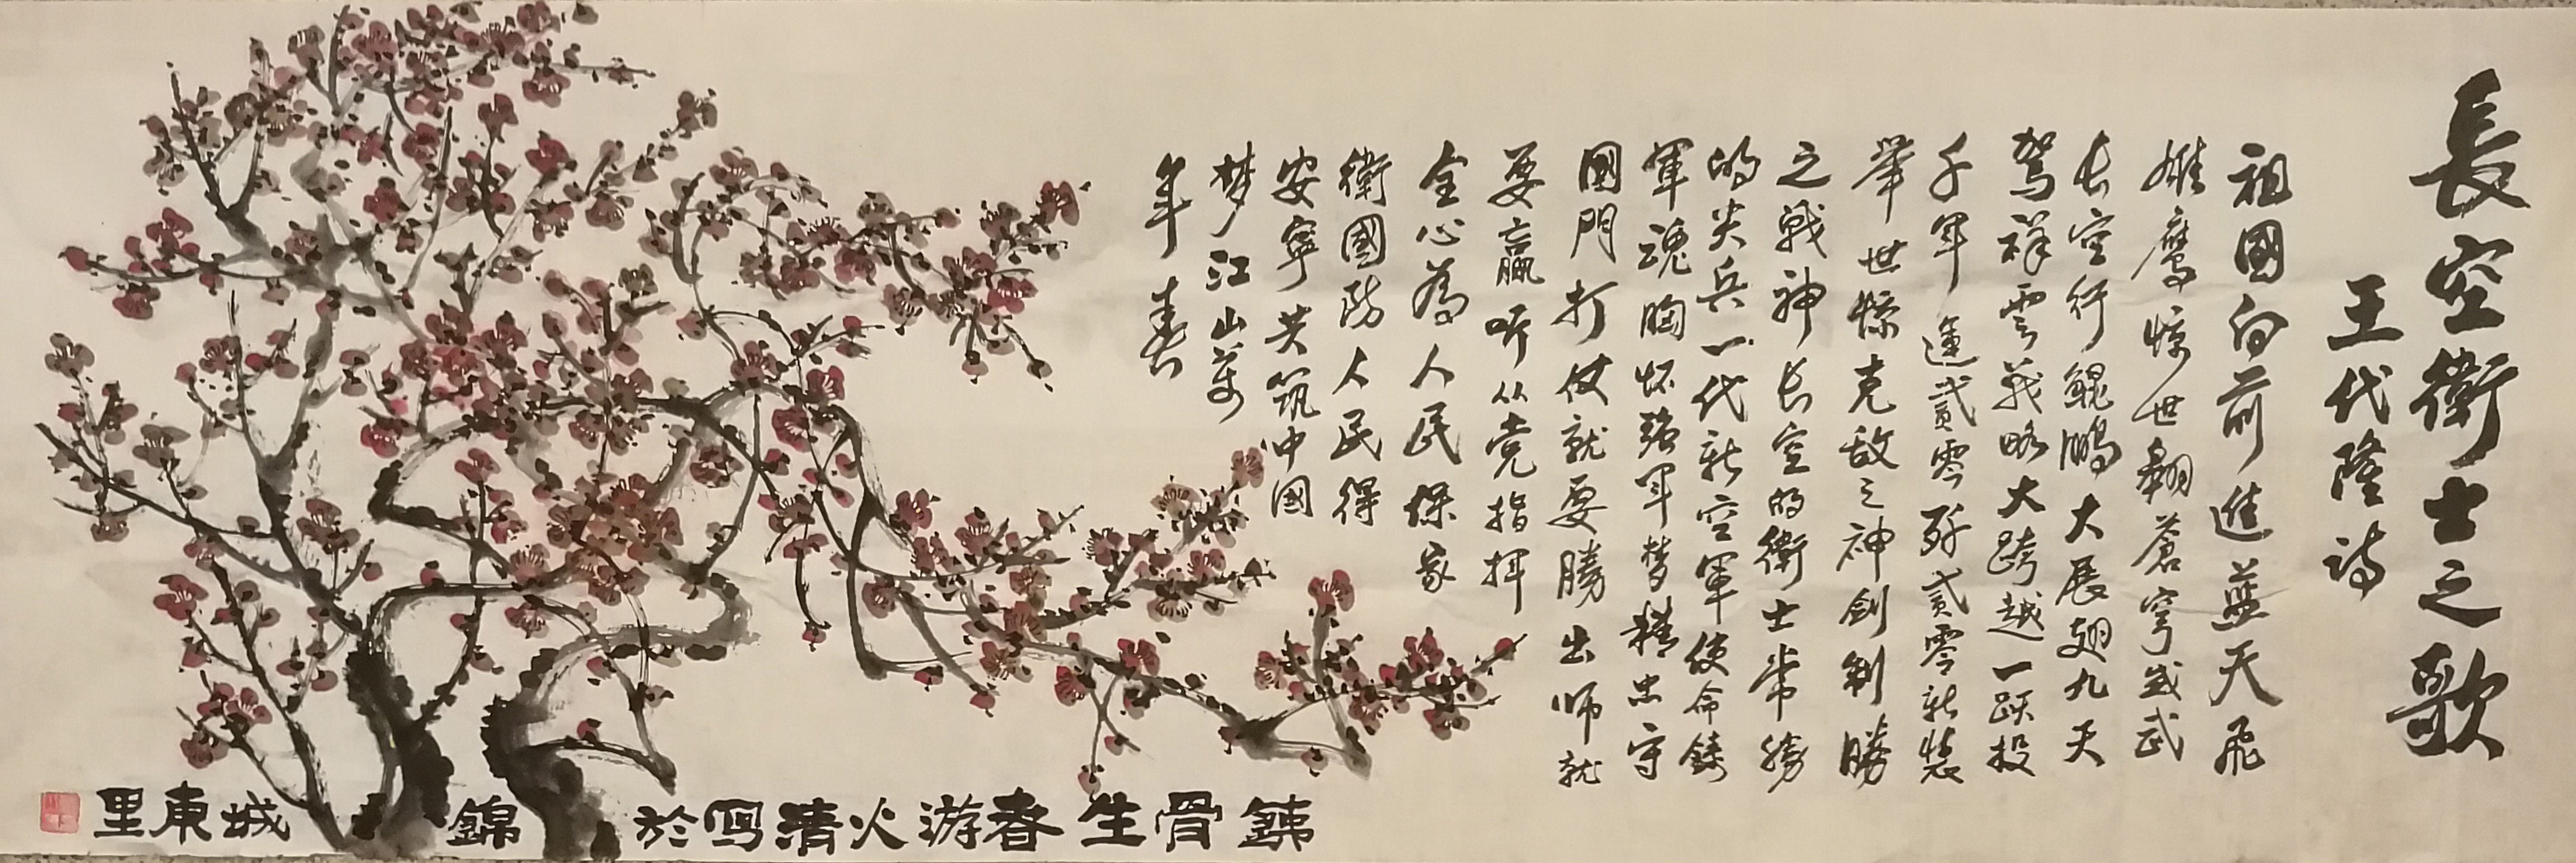 長空衛士之歌
王代隆詩
祖國向前進蓝天飛
雄鷹惊世翱蒼穹威武
长空行鲲鵬大展翅九天
驾祥雲战略大跨越一跃投
千軍運贰零歼贰零新装
举世惊克敌之神剑制勝
之戰神长空的衛士常勝
的尖兵一代新空軍使命鋳
軍魂胸怀强军梦精忠守
國門打仗就要勝出师就
要贏听从党指揮
全心為人民保家
衛國防人民得
安寧共筑中國
梦江山萬
年春
鐵骨生春游火清寫於錦城東里